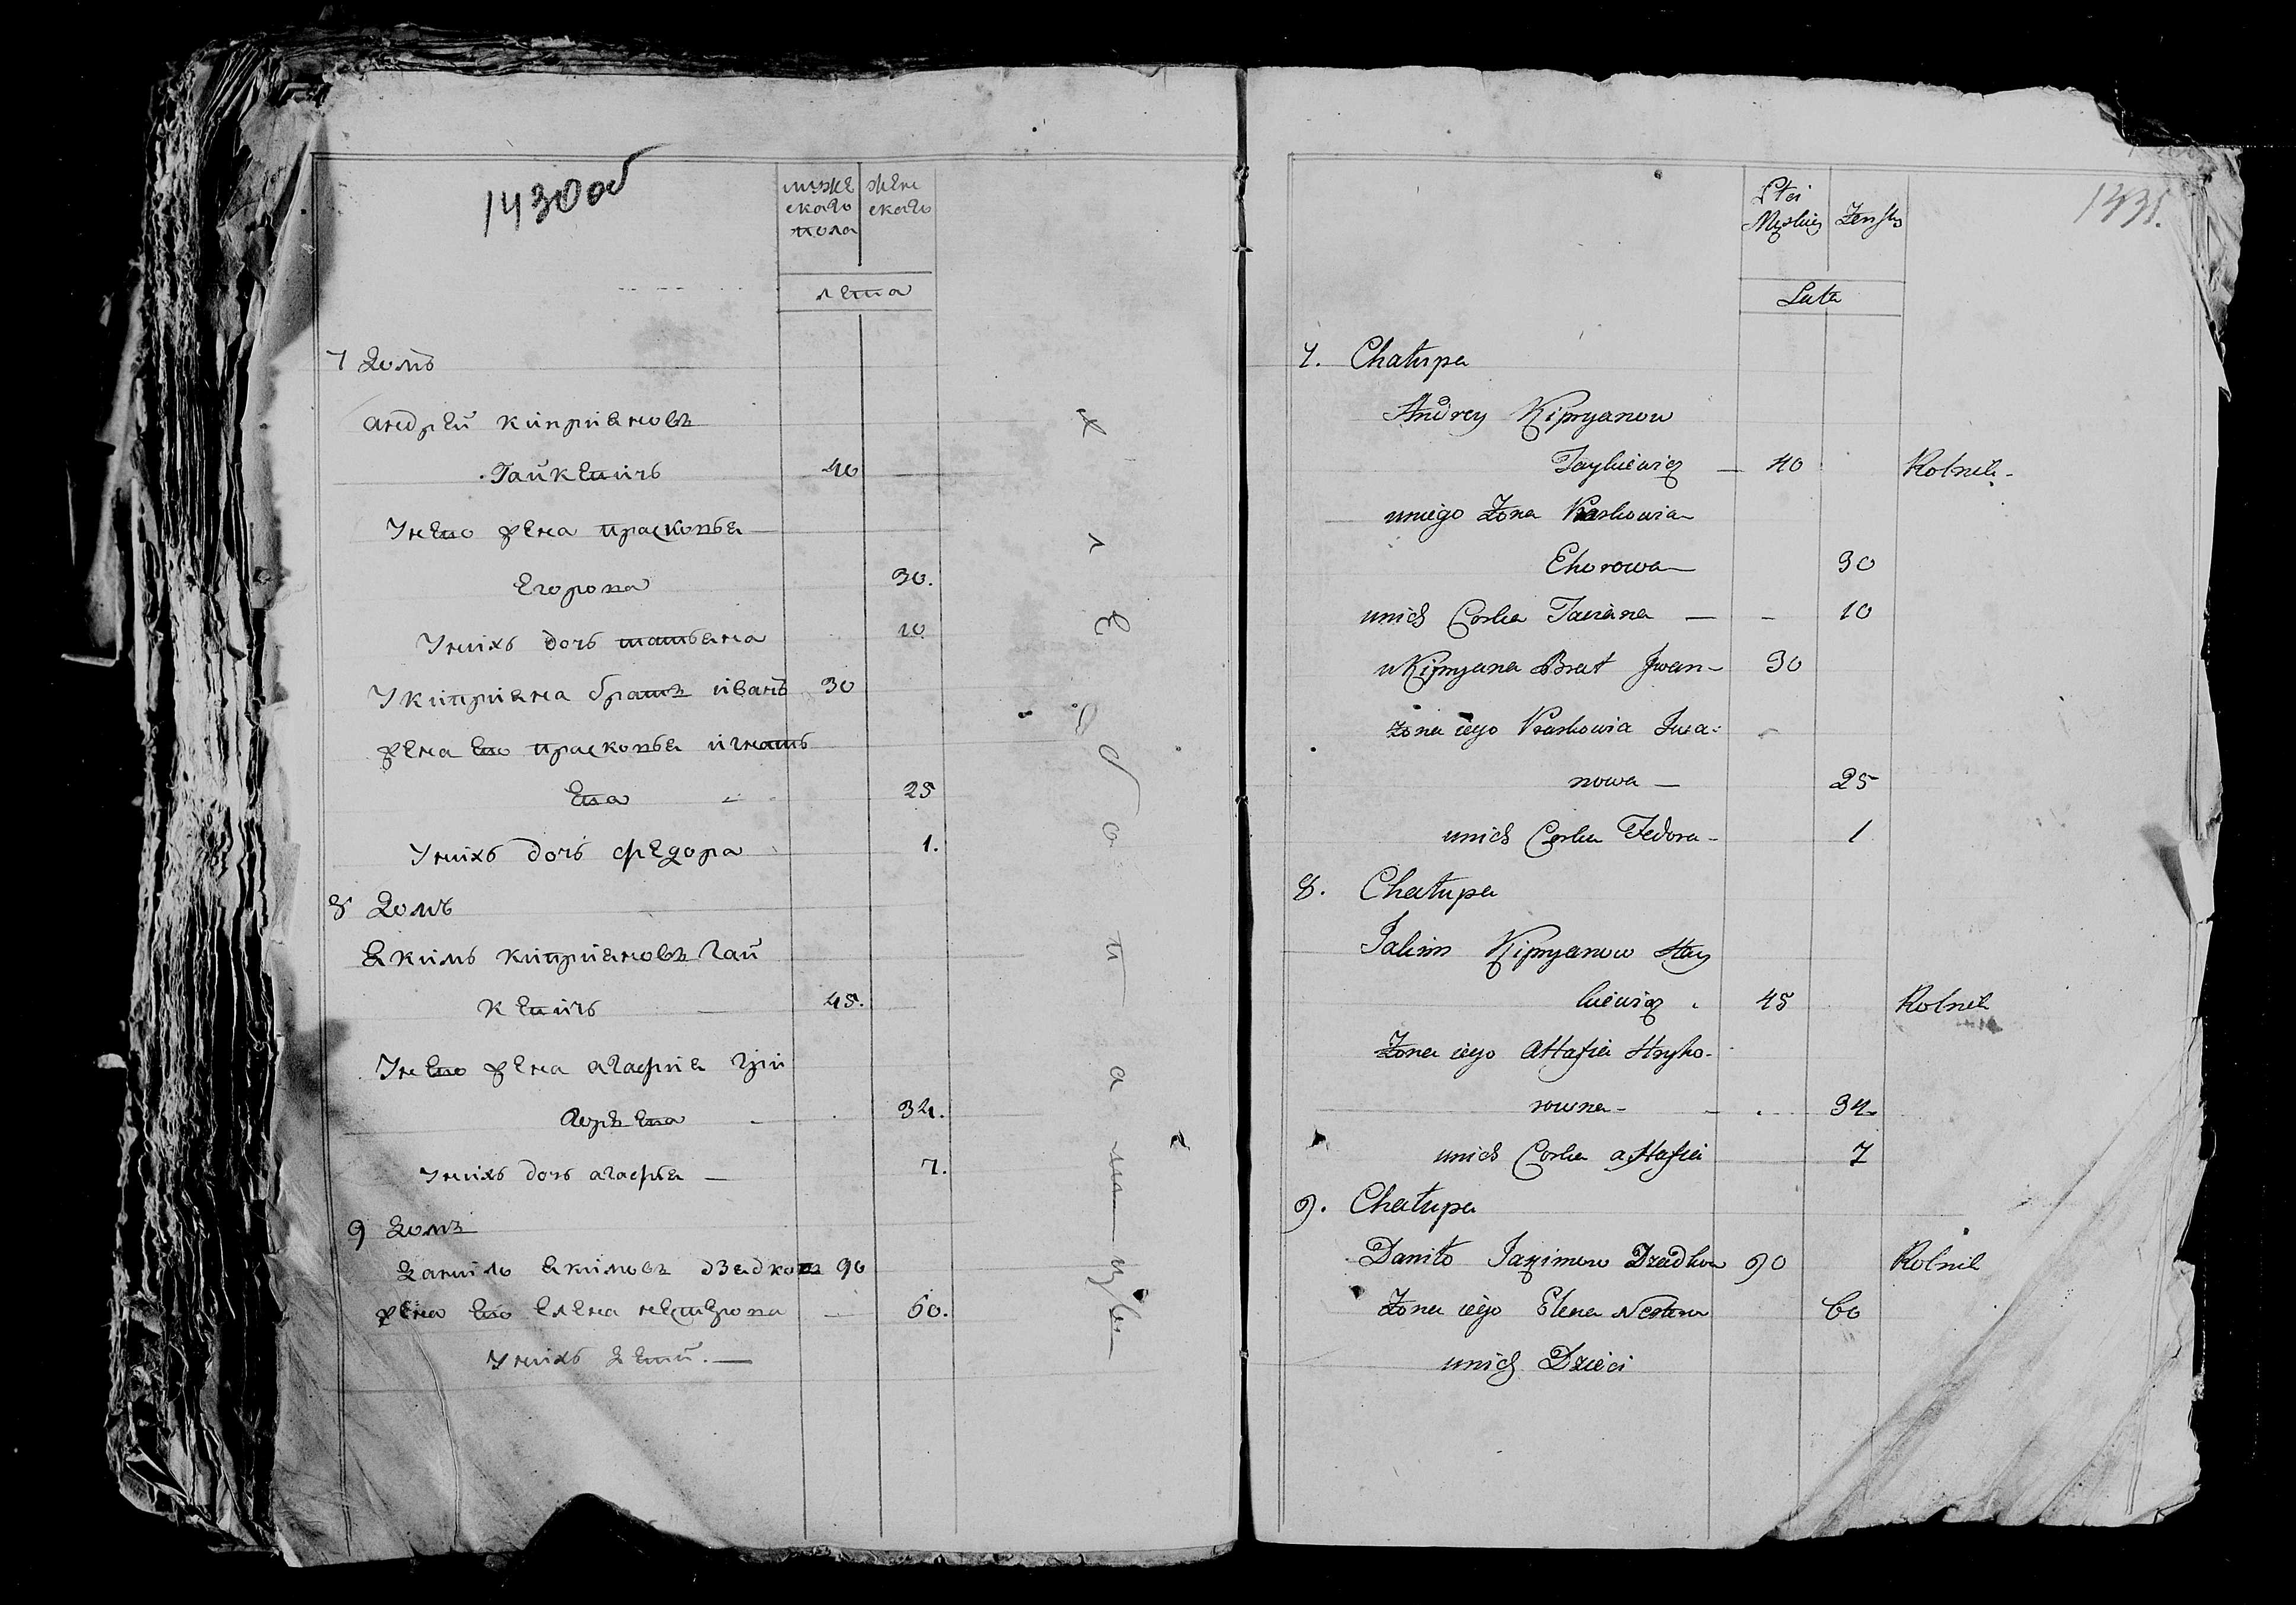 1430об
мужескаго пола
женскаго
лета
7 Домъ
андрей киприяновъ
Гайкевичъ 40
Унево жена прасковья
Егорова 30.
Унихъ дочь татьяна 10
Укиприяна братъ иванъ 30
жена ево прасковья игнать
Ева 25
Унихъ дочь федора 1.
8 Домъ
Якимъ киприяновъ Гай
кевичъ 45.
Унево жена агафия гри
горьева 34.
Унихъ дочь агафья 7.
9 Домъ
Данило якимовъ дзядковъ 90
жена ево Елена нестерова 60.
Унихъ детй.
хлебопатцы
1431.
Płci Męskiey
Żeńsky
Lata
7. Chałupa
Andrey Kipryanow
Haykiewicz 40 Rolnik
uniego Żona Praskowia
Ehorowa 30
unich Corka Taciana 10
u Kipryana Brat Jwan 30
żona iego Praskowia Jwa:
nowa 25
unich Corka Fedora 1
8. Chałupa
Jakim Kipryanow Hay
kiewicz 45 Rolnik
Żona iego AHafia Hryho-
rowna 34
unich Corka aHafia 7
9. Chałupa
Daniło Jakimow Dziadkow 90 Rolnik
Żona iego Elena 60
unich Dzieci